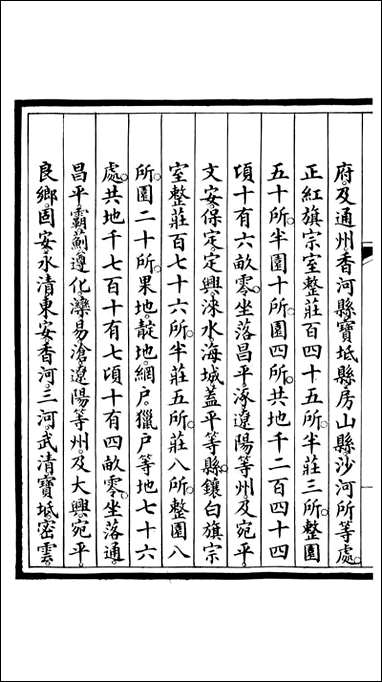 府及通州香河縣寶坻縣房山縣沙河所等處。
正紅旗宗室整莊百四十五所。半莊三所。整園
五十所。半園十所。園四所。共地千二百四十四
頃十有六畝零。坐落昌平。涿。遼陽等州。及宛平。
文安。保定。定興。淶水。海城。蓋平等縣。鑲白旗宗
室整莊百七十六所。半莊五所。莊八所。整園八
所。園二十所。果地。靛地。網戶。獵戶等地七十六
處。共地千七百十有七頃十有四畝零。坐落通。
昌平。霸。薊。遵化。灤。易。滄。遼陽等州。及大興。宛平。
良鄉。固安。永清。東安。香河。三河。武清。寶坻。密雲。